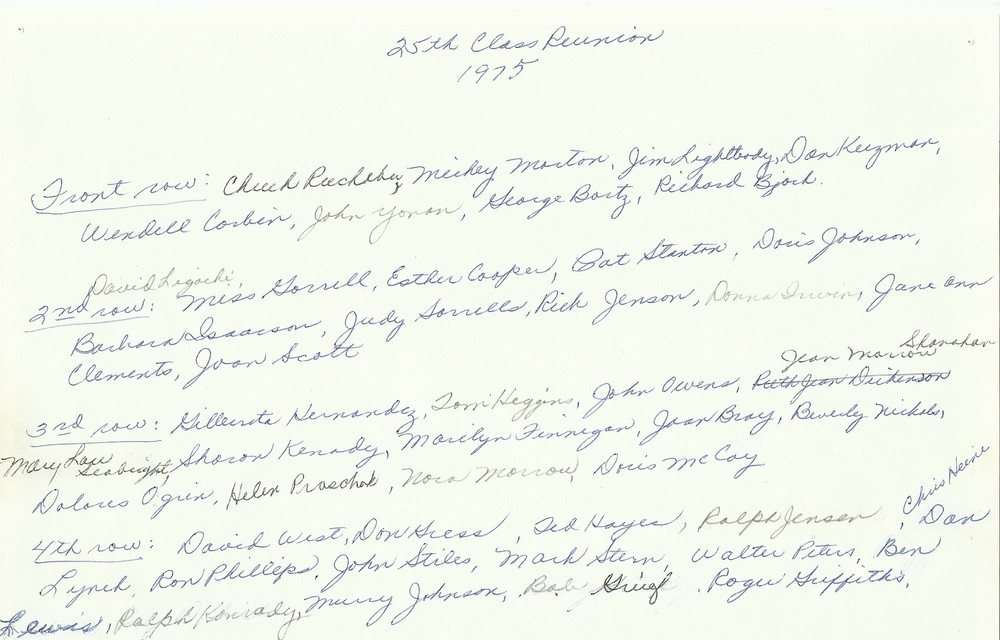 25th Class Reunion
1975
Front row: Chuck Mickey Morton, Jim Lightbody, Don Kuzman,
Wendell Corbin, John Yovan, George Bortz, Richard Bjork.
David Ligocki,
2nd row: Miss Gorrell, Esther Cooper, Pat Stanton, Doris Johnson,
Barbara Isaacson, Judy Sorrells, Rick Jenson, Donna Irwin, Jane Ann
Clements, Joan Scott
Jean Morrow Shanahan
3rd row: Hernandez, Tom Higgins, John Owens, Ruth Jean Dickenson
Mary Lou Seabright, Sharon Kenady, Marilyn Finnegan, Joan Bray, Beverly Nichols,
Dolores Ogrin, Helen Praschak, Nora Morrow, Doris McCoy
Chris Heine
4th row: David West, Don Hress, Ted Hayes, Ralph Jensen, Dan
Lynch, Ron Phillips, John Stiles, Mark Stern, Walter Peters, Ben
Lewis, Ralph Konrady, Murry Johnson, Bob Roger Griffiths,